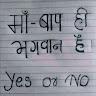 माँ-बाप ही
भगवान है
Yes or NO